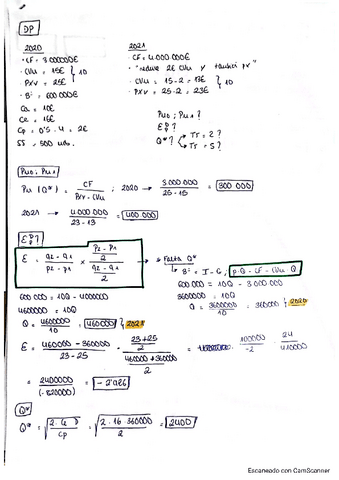 DP
2020
· CF = 3 000 000€
· CVu = 15€
· PVu = 25€
} 10
· Bº = 600 000€
Ca = 10€
Ce = 16€
Cp = 0'5 · 4 = 2€
SS = 500 uds.
2021
· CF = 4 000 000€
· "reduce 2€ CVu y también pv"
· CVu = 15 - 2 = 13€
· PVu = 25 - 2 = 23€
} 10
Pu0 ; Pu1 ?
Q* ?
Tr = 2 ?
Tr = 5 ?
Pu0 ; Pu1
Pu (Q*) = CF / PVu - CVu ; 2020 → 3 000 000 / 25 - 15 = 300 000
2021 → 4 000 000 / 23 - 13 = 400 000
E = q2 - q1 / p2 - p1 × p2 + p1 / 2 / q2 + q1 / 2
* Falta Q*
Bº = I - C ; p·Q - CF - CVu · Q
600 000 = 10Q - 3 000 000
3600000 = 10Q
Q = 3600000 / 10 = 360000 } 2020
600 000 = 10Q - 4000000
4600000 = 10Q
Q = 4600000 / 10 = 460000 } 2021
E = 460000 - 360000 / 23 - 25 · 23 + 25 / 2 / 460000 + 360000 / 2
= 100000 / -2 · 24 / 410000
= 2400000 / (-820000) = - 2'926
Q*
Q* = √ 2 · Q · D / Cp = √ 2 · 16 · 360000 / 2 = 2400
Escaneado con CamScanner